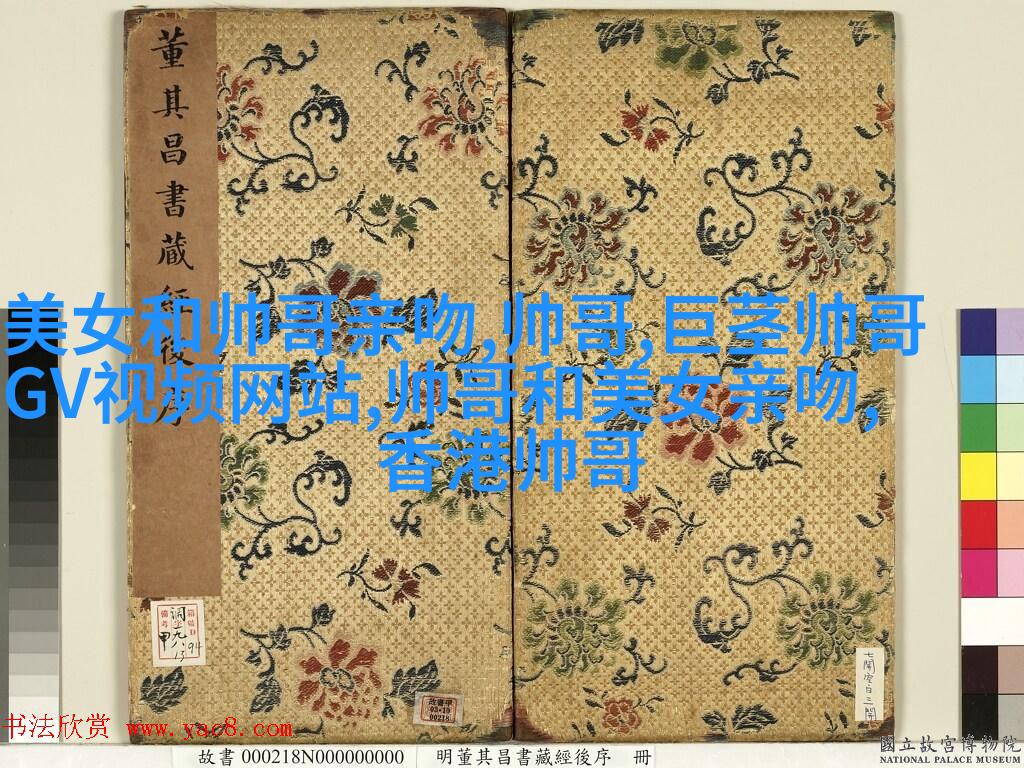 董其昌書藏經後序
美女和帅哥亲吻,帅哥,巨茎帅哥
GV视频网站,帅哥和美女亲吻,
香港帅哥
箱號D
備考
調字九八
13
94
甲
故書甲
03*10
00218
七開空白三開
书法欣赏 www.yac8.com
故書 000218N000000000
明董其昌書藏經後序 冊
國立故宮博物院
NATIONAL PALACE MUSEUM